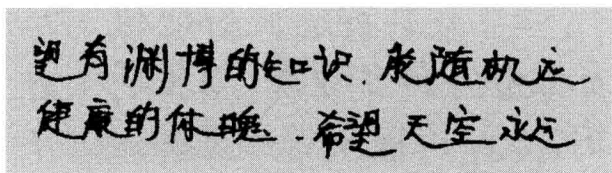 望有渊博的知识.能随机应
健康的体魄.希望天空永远